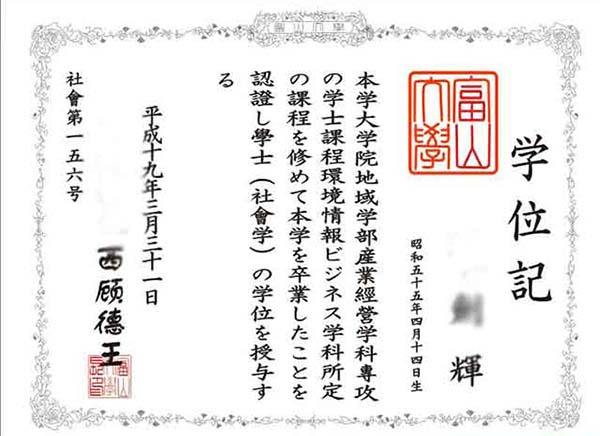 学位記
富山大學
輝
昭和五十五年四月十四日生
本学大学院地域学部産業經営学科専攻
の学士課程環境情報ビジネス学科所定
の課程を修めて本学を卒業したことを
認證し學士（社會学）の学位を授与す
る
平成十九年三月三十一日
西顾德王
社會第一五六号